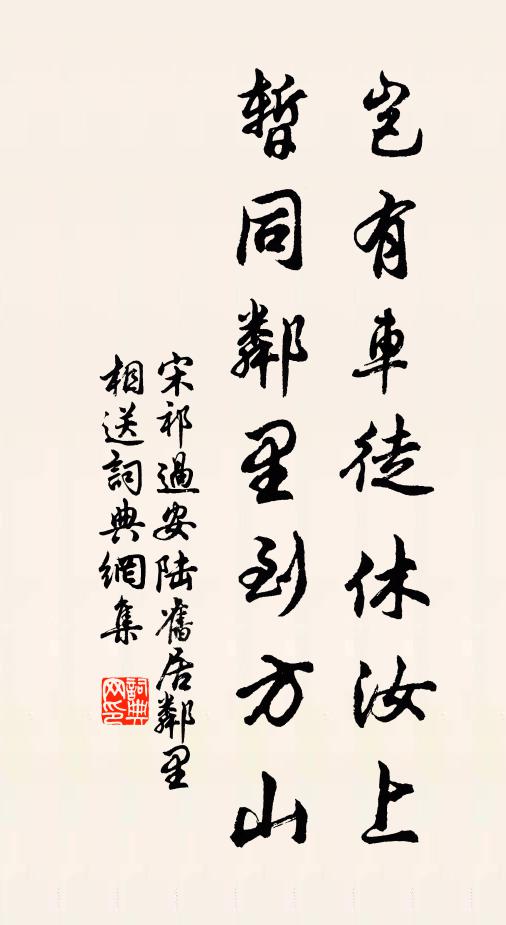 岂有車徒休汝上
暫同鄰里到方山
宋祁過安陸舊居鄰里
相送詞典網集
詞典
网印